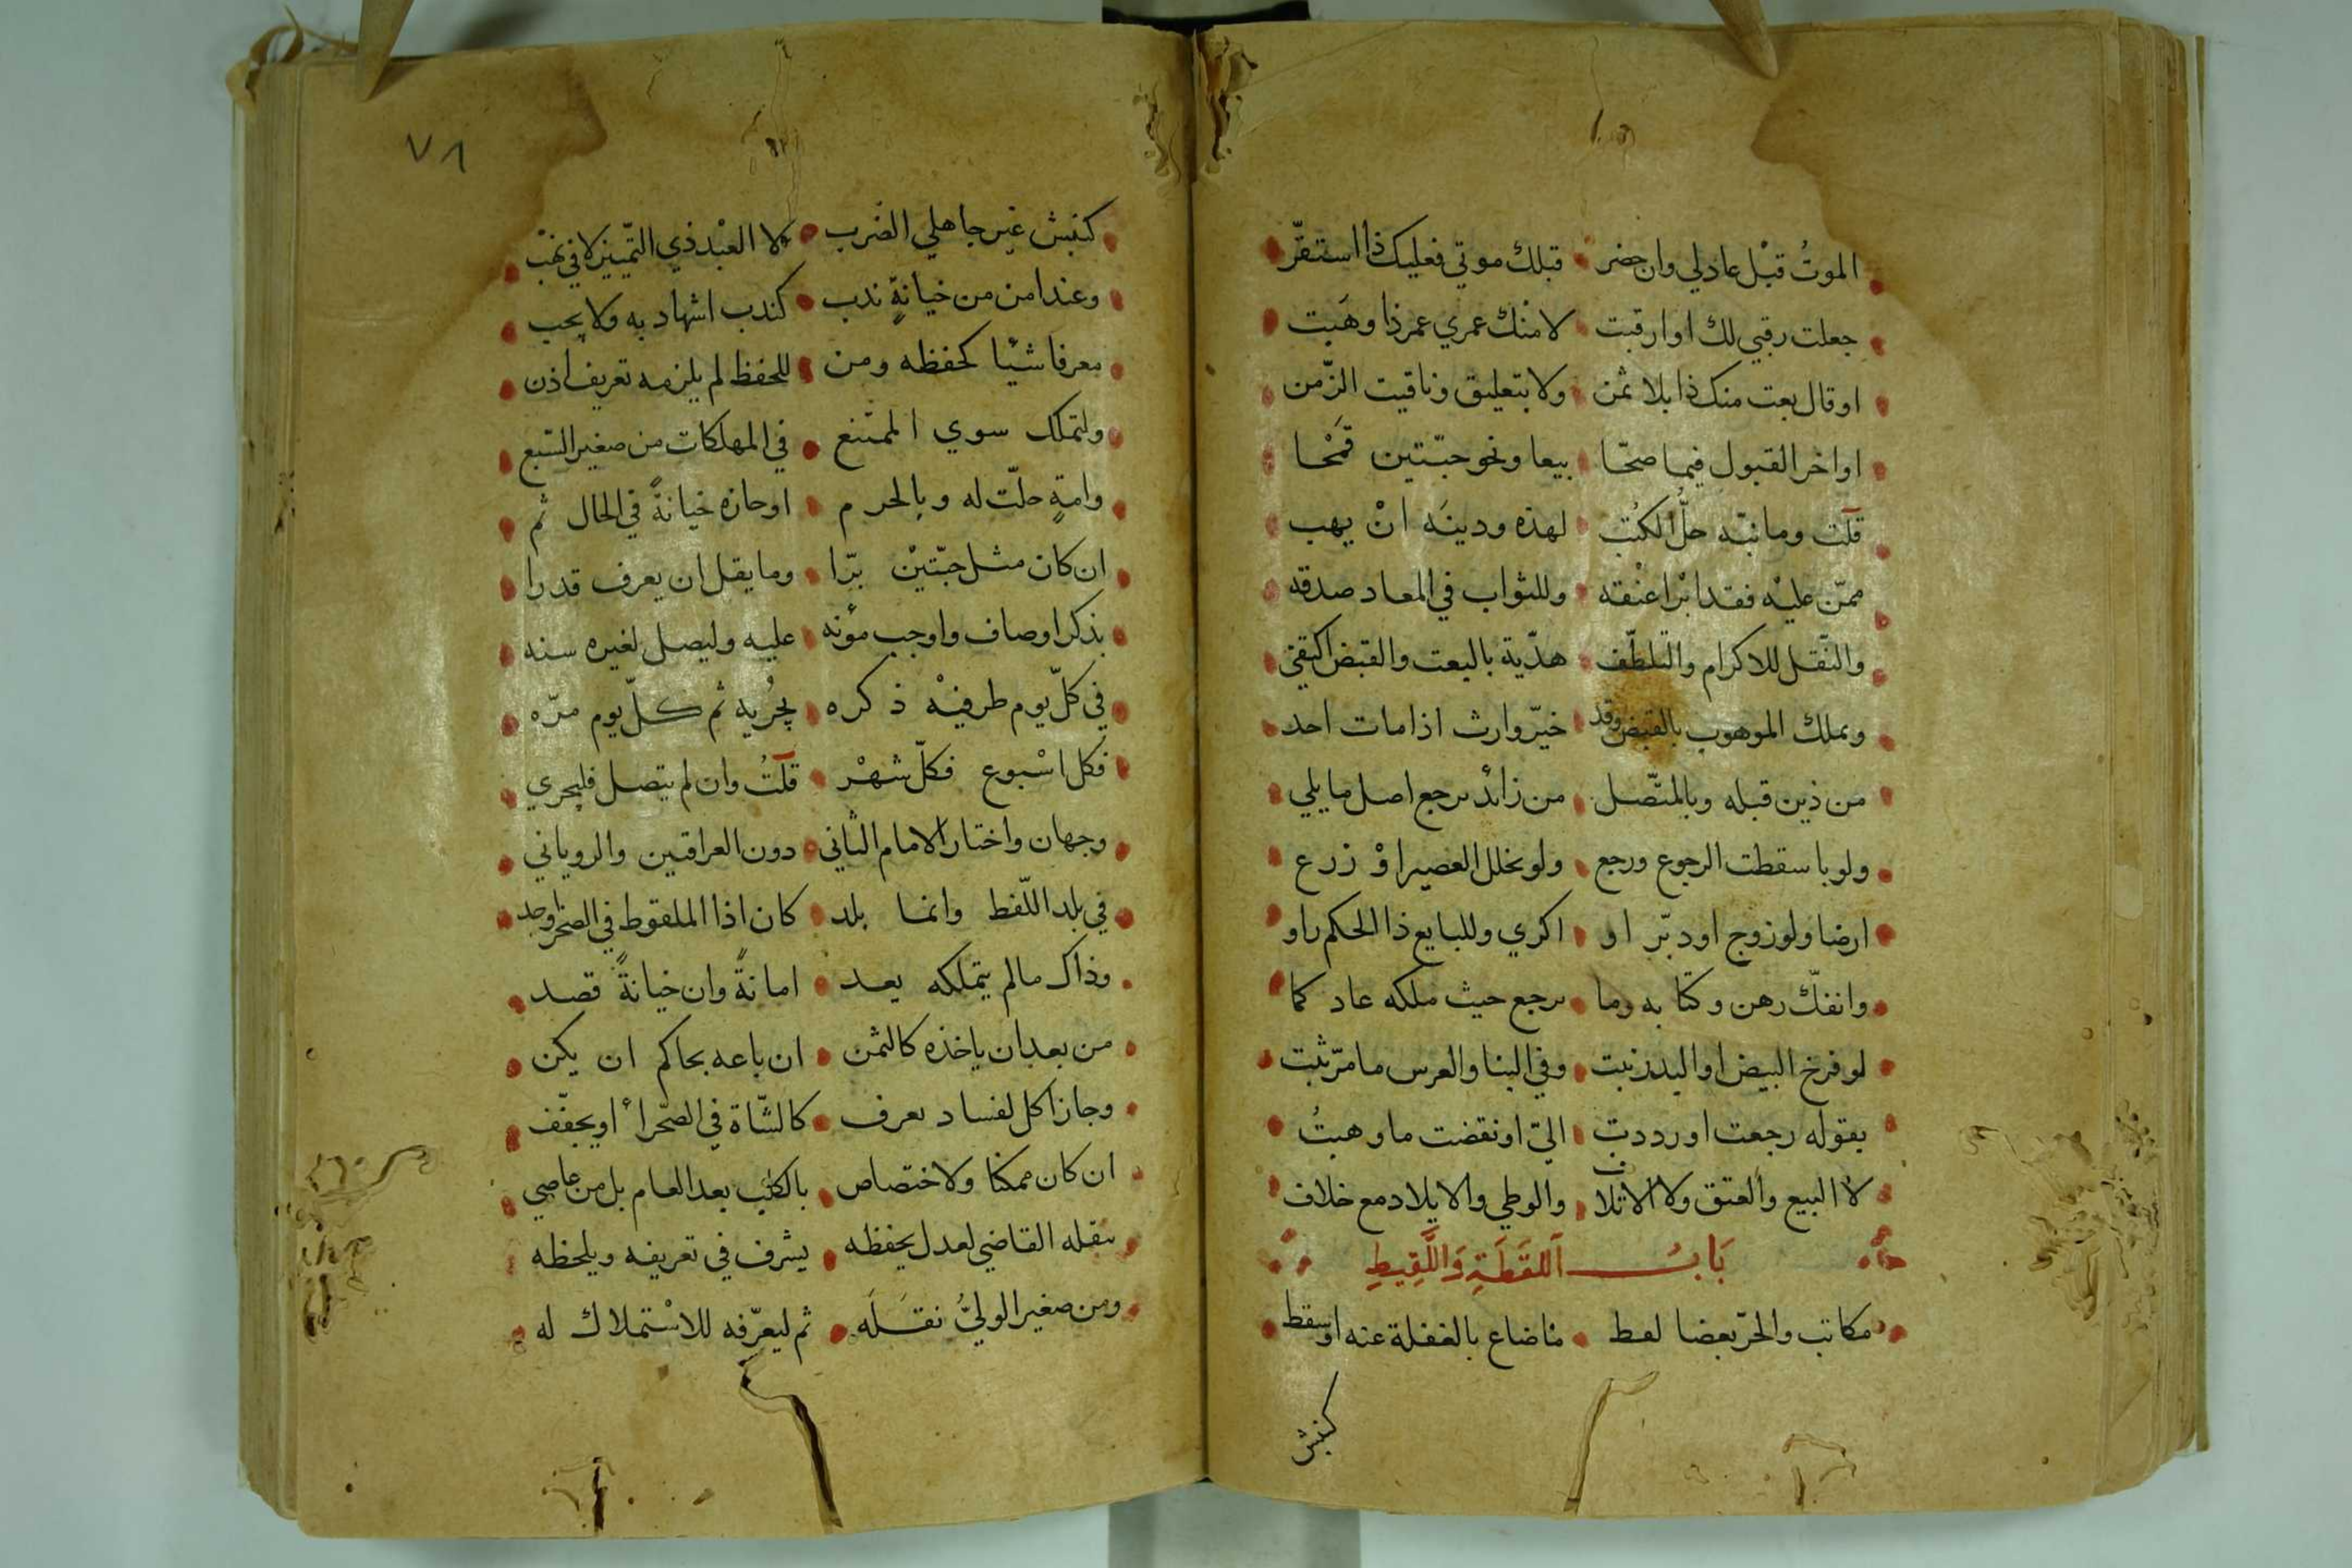 الموتُ قبْل عاد لي وان حضر قبلك موتي فعليك ذا استقرّ
جعلت رقبي لك او ارقبت لا منك عمري عمر ذا وهَبت
او قال بعت منك ذا بلا ثمن ولا بتعليق وتاقيت الزّمن
او اخر القبول فيما صحّا بيعا ونحو حبّتين قمْحا
قلت وما نبّه حلُّ الكُتب لهذه ودينَه انْ يهب
ممّن عليْه فقد ابْرا عتْقه وللثواب في المعاد صدقه
والنّقل للاكرام والتلطّف هدّية بالبعت والقبض اكتفي
وبملك الموهوب بالقبض وقد خيّر وارث اذا مات احد
من ذين قبله وبالمتّصل من زائد يرجع اصل ما يلي
ولو باسقطت الرجوع ورجع ولو بخلل العصير اوْ زرع
ارضا ولو زوج او دبّر او اكري وللبايع ذا الحكم راو
وانفكّ رهن وكتابه وما يرجع حيث ملكه عاد كما
لو فرخ البيض او البذر نبت وفي البنا والغرس ما مرّ ثبت
بقوله رجعت او رددت اليّ او نقضت ما وهبتُ
لا البيع والعتق ولا الاتلاف والوطي والايلاد مع خلاف
بَابُ اَللقَطَةِ وَاللَّقِيطِ
مكاتب والحرّ بعضا لقط ما ضاع بالغفلة عنه او سقط
كنبش
٧٨
كنبش غير جاهلي الضّرب لا العبْد ذي التّمييز لا في نهْب
وعند امن من خيانةٍ ندب كندب اشهاد به ولا يجب
معرفا شيئا كحفظه ومن للحفظ لم يلزمه تعريف اذن
ولتملك سوي الممتنع في المهلكات من صغير السّبع
وامةٍ حلّت له وبالحرم او حازه خيانةً في الحال ثم
ان كان مثل حبّتيْن برّا وما يقل ان يعرف قدرا
بذكر اوصاف واوجب مؤنه عليه وليصل لغيره سنه
في كلّ يوم طرفيْه ذكره يجُريه ثم كلّ يوم مرّه
فكل اسْبوع فكلّ شهْر قلتُ وان لم يتصل فليجري
وجهان واختار الامام الثاني دون العراقين والروياني
في بلد اللّقط وانما بلد كان اذا الملقوط في الصحرا وجد
وذاك ما لم يتملكه يعد امانةً وان خيانةً قصد
من بعد ان ياخذه كالثمن ان باعه بحاكم ان يكن
وجاز اكل لفساد يعرف كالشّاة في الصّحراء او يجفّف
ان كان ممكنا ولاختصاص بالكلب بعد العام بل من عاصي
ينقله القاضي لعدل يحفظه يشرف في تعريفه ويلحظه
ومن صغير الوليُّ نقَلَه ثم ليعرّفه للاسْتملاك له